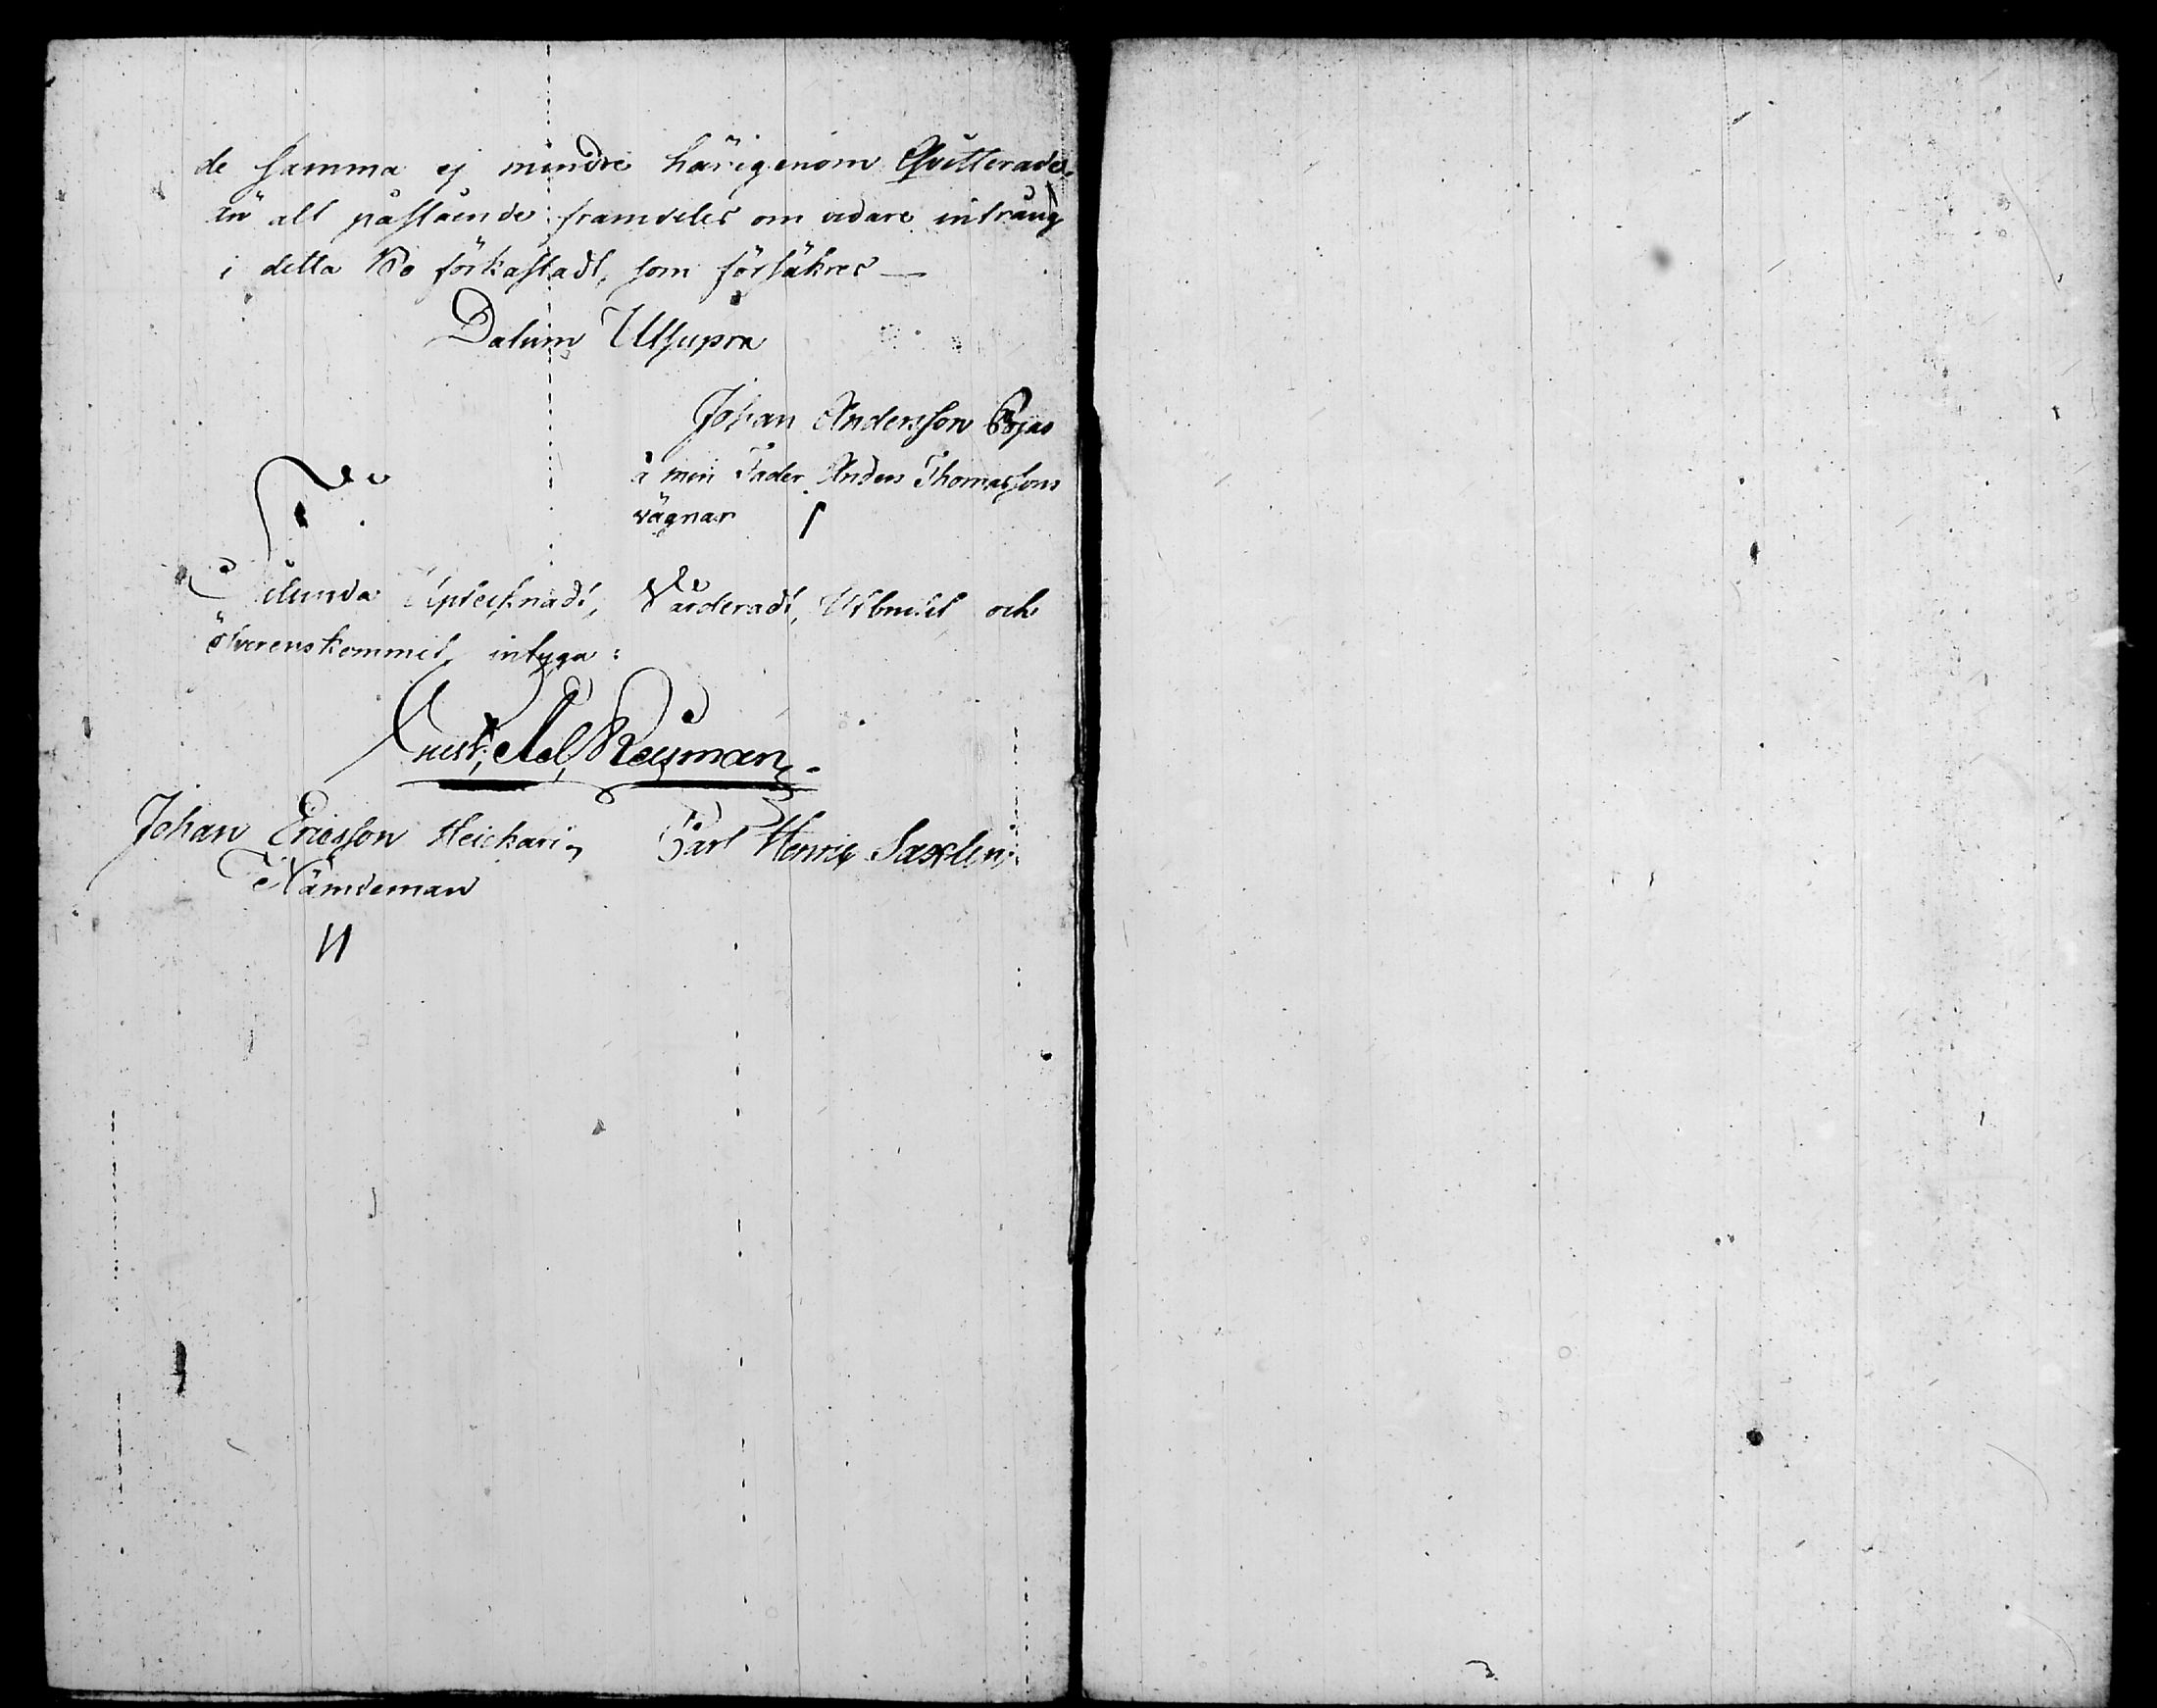 de samma ej mindre härigenom Qvitterade,
än alt påstående framdeles om vidare intrång
i detta Bo förkastadt, som försäkres —
Datum Utsupra
Johan Andersson
å min Fader Anders Thomassons
vägnar
Sålunda Uptecknadt, Värderadt, Utbudit och
öfverenskommit, intyga:
Gust, Ad, Neuman
Johan Ericsson Heickari
Carl Henric Saxlin
Nämdeman